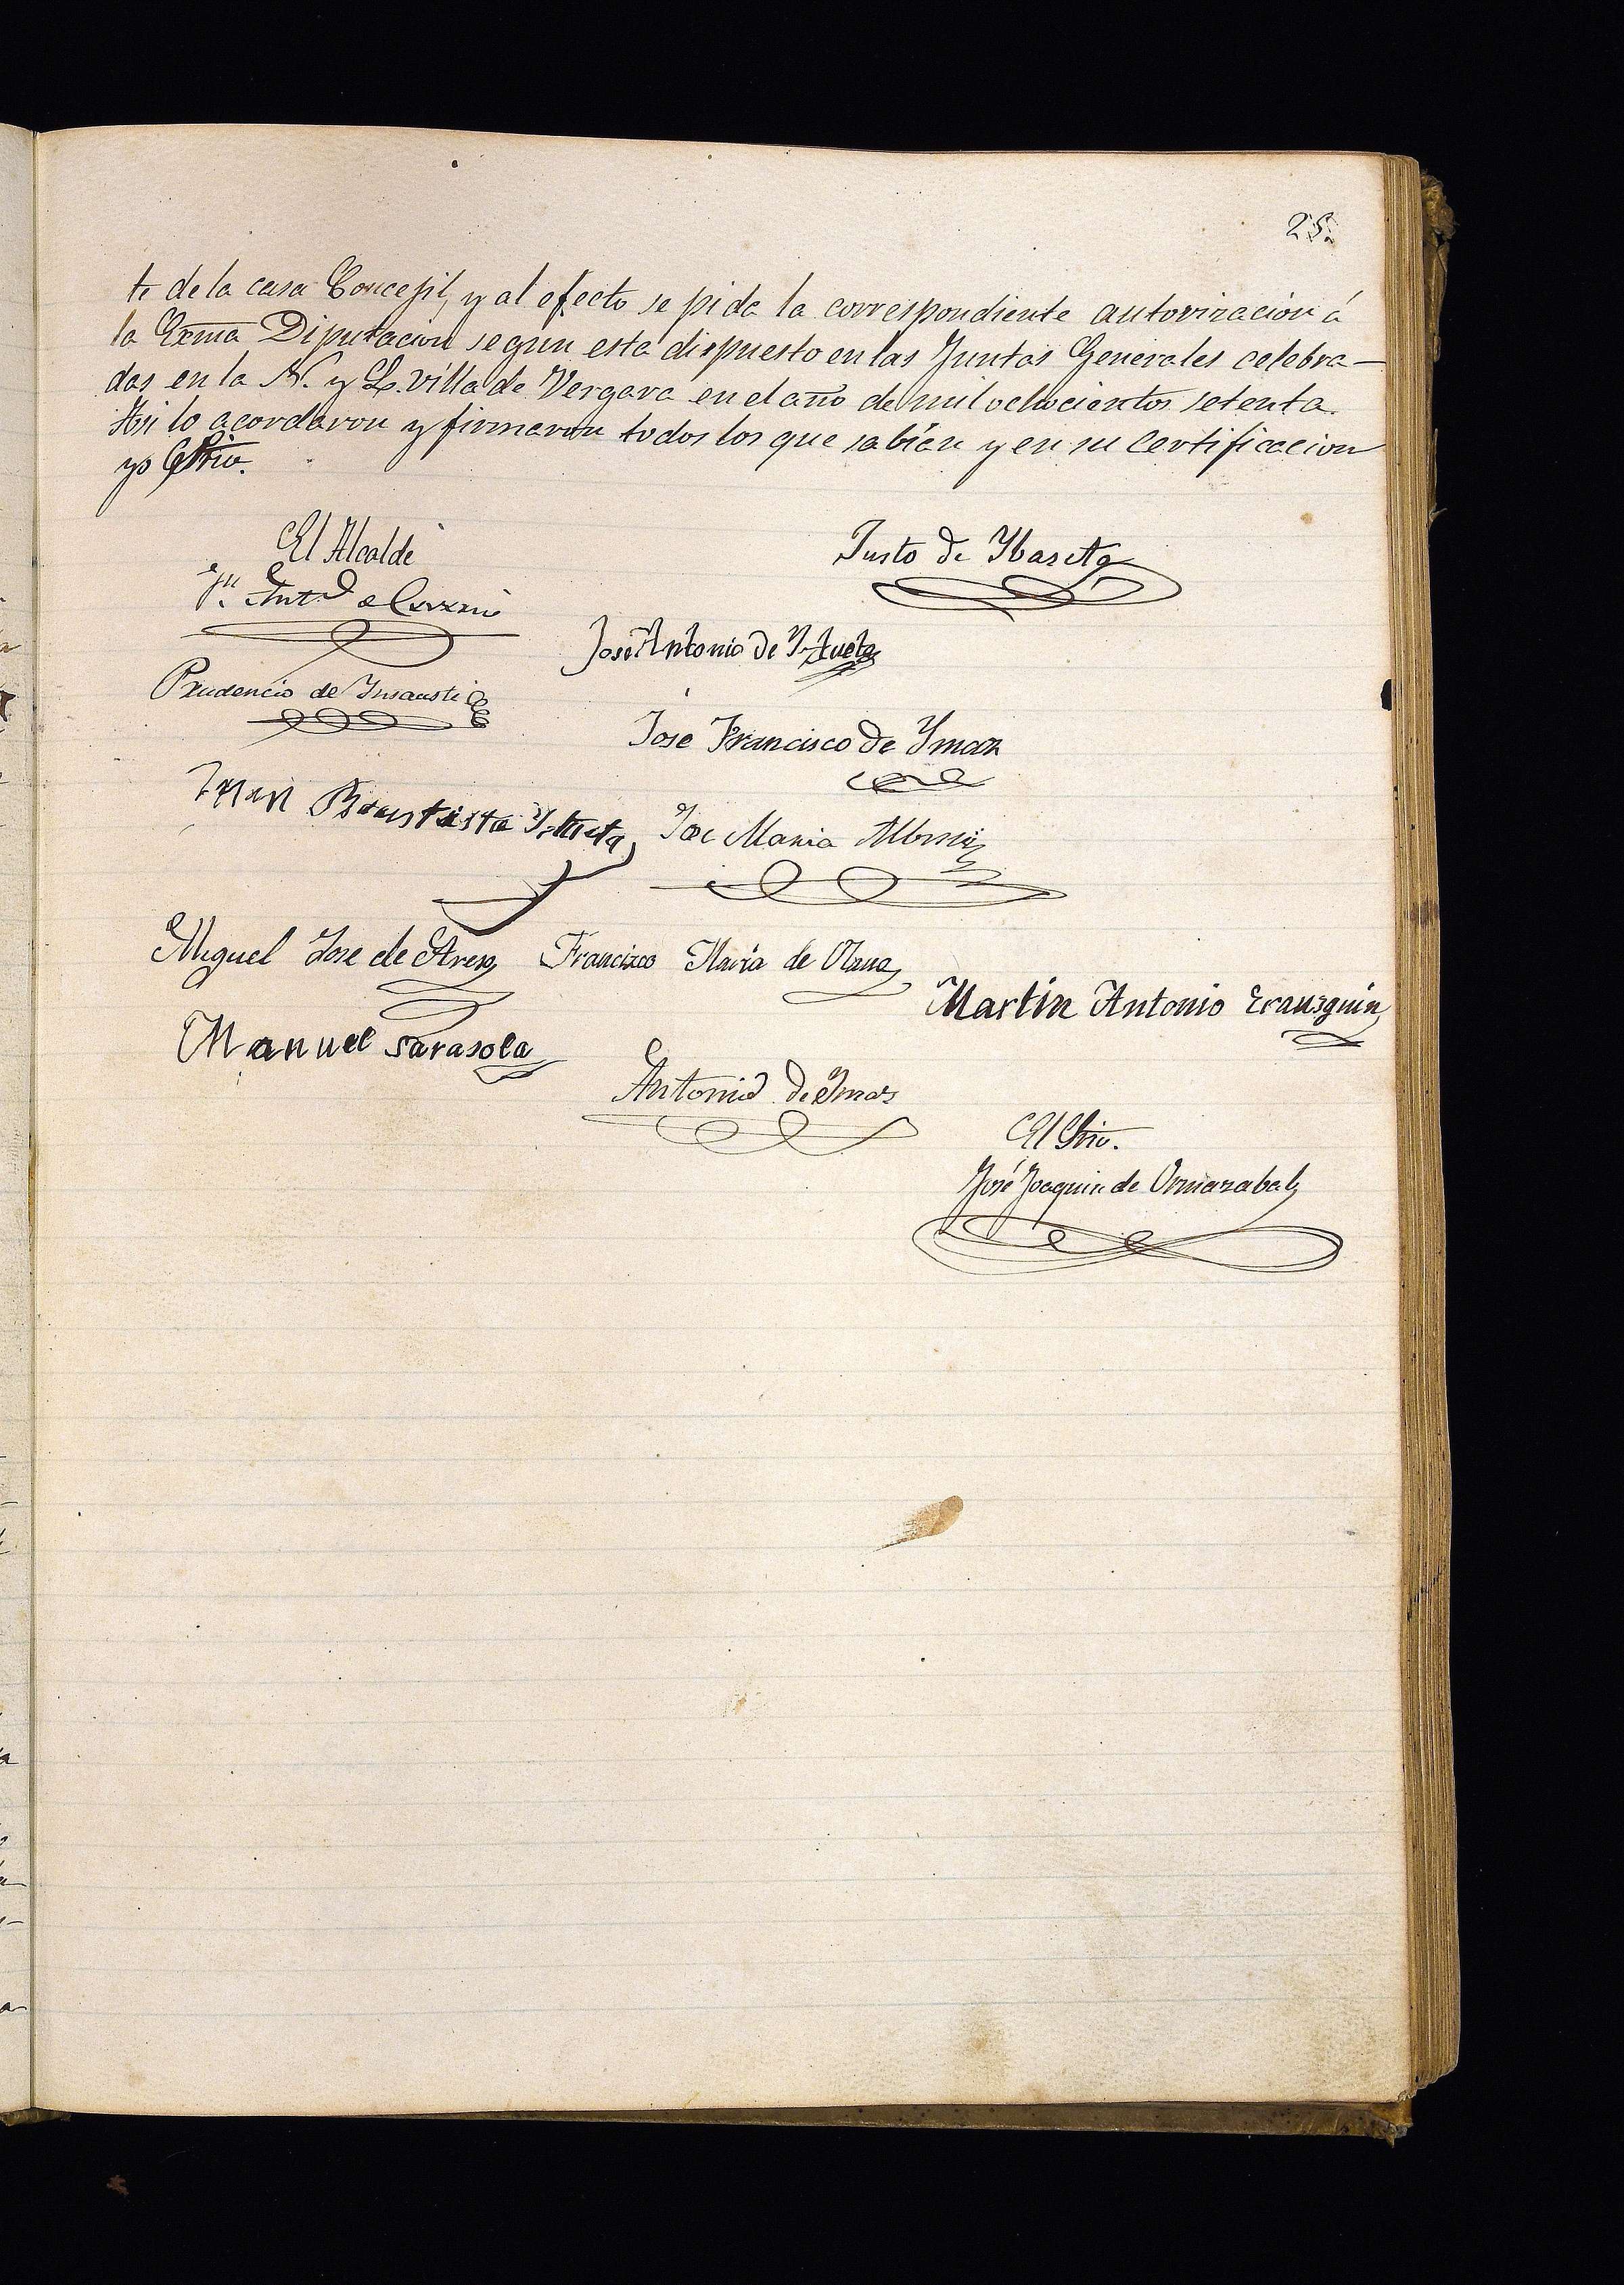 25.
te de la casa Concejil, y al efecto se pida la correspondiente autorizacion á
la Exma Diputacion segun esta dispuesto en las Juntas Generales celebra-
das en la N. y L. villa de Vergara en el año de mil ochocientos setenta.
Asi lo acordaron y firmaron todos los que sabian y en su certificacion
yo el Srio.
El Alcalde
Justo de Ybareta
Jn. Antº de
José Antonio de
Prudencio de Ynsausti
José Francisco de Ymaz
Juan Bautista
Jose Maria
Miguel Jose de
Francisco Maria de Olano
Martin Antonio Erausquin
Manuel Sarasola
Antonio de Ymaz
El Srio.
José Joaquin de Ormazabal